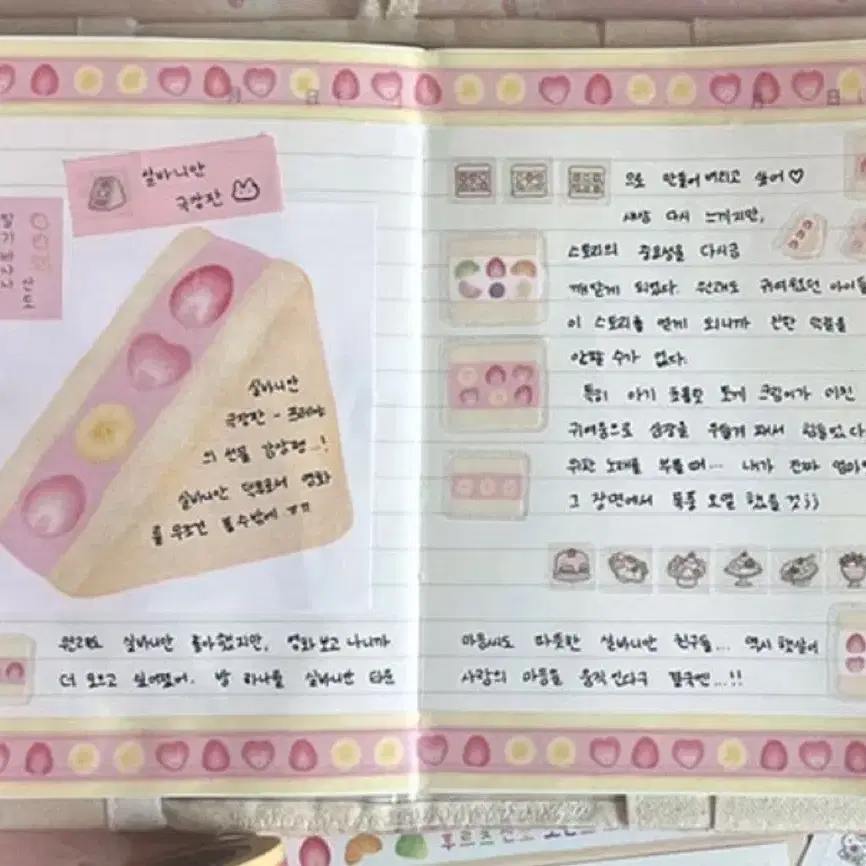 실바니안
극장판
딸기바나나
산도
실바니안
극장판 - 프레야
의 선물 감상평...!
실바니안 덕후로서 영화
를 무조건 볼수밖에 ㅠㅠ
원래도 실바니안 좋아했지만, 영화보고 나니까
더 모으고 싶어졌어. 방 하나를 실바니안 타운
으로 만들어 버리고 싶어♡
새삼 다시 느끼지만,
스토리의 중요성을 다시금
깨닫게 되었다. 원래도 귀여웠던 아이들
이 스토리를 얻게 되니까 진짜
안팔 수가 없다.
특히 아기 초콜릿 토끼 크림이가 미친
귀여움으로 심장을 부숴서 힘들었다
위한 노래를 부를때... 내가 진짜 엄마
그 장면에서 폭풍 오열 했을 것;;
마음씨도 따뜻한 실바니안 친구들... 역시 햇살이
사람의 마음을 움직인다구 결국엔...!!
월 일
월 일
후르츠산도